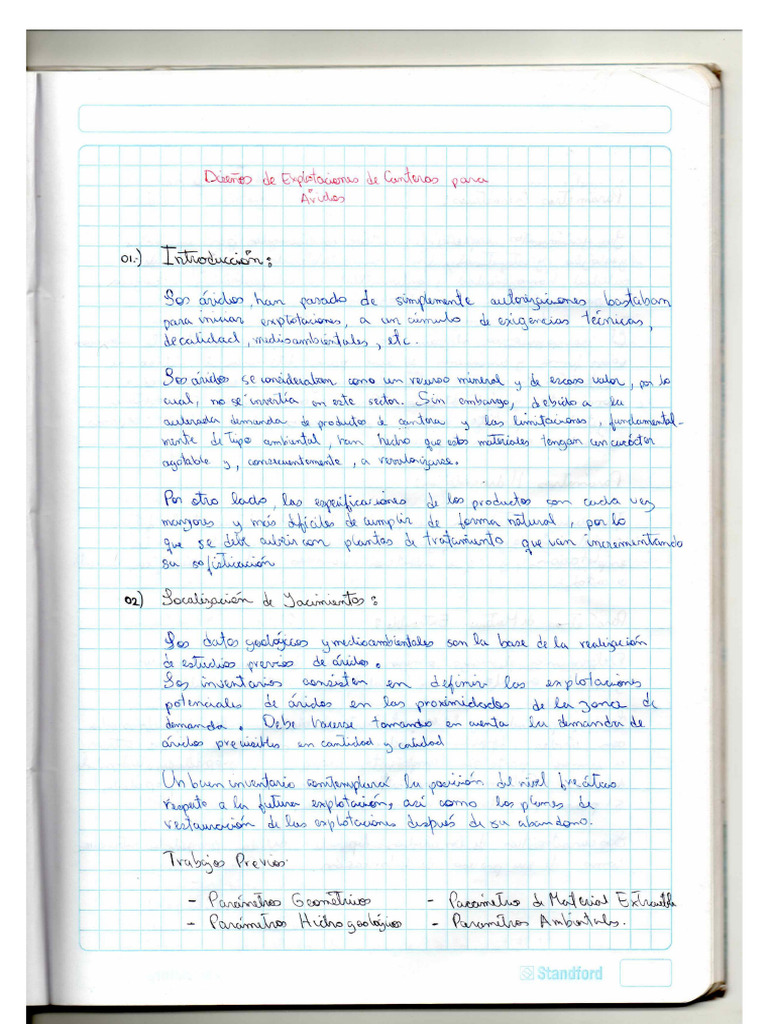 Diseños de Explotaciones de Canteras para
Áridos
01.) Introducción:
Los áridos, han pasado de simplemente autorizaciones bastaban
para iniciar explotaciones, a un cúmulo de exigencias técnicas,
de calidad, medioambientales, etc.
Los áridos se consideraban como un recurso mineral y de escaso valor, por lo
cual, no se invertía en este sector. Sin embargo, debido a la
acelerada demanda de productos de cantera y las limitaciones, fundamental-
mente de tipo ambiental, han hecho que estos materiales tengan un carácter
agotable y, consecuentemente, a revalorizarse.
Por otro lado, las especificaciones de los productos son cada vez
mayores y más difíciles de cumplir de forma natural, por lo
que se debe cubrir con plantas de tratamiento que van incrementando
su sofisticación
02) Localización de Yacimientos:
Los datos geológicos y medioambientales son la base de la realización
de estudios previos de áridos.
Los inventarios consisten en definir las explotaciones
potenciales de áridos en las proximidades de la zona de
demanda. Debe hacerse tomando en cuenta la demanda de
áridos previsibles en cantidad y calidad
Un buen inventario contemplará la posición del nivel freático
respecto a la futura explotación, así como los planes de
restauración de las explotaciones después de su abandono.
Trabajos Previos
- Parámetros Geométricos - Parámetros de Material Extraíble
- Parámetros Hidrogeológicos - Parámetros Ambientales.
Standford